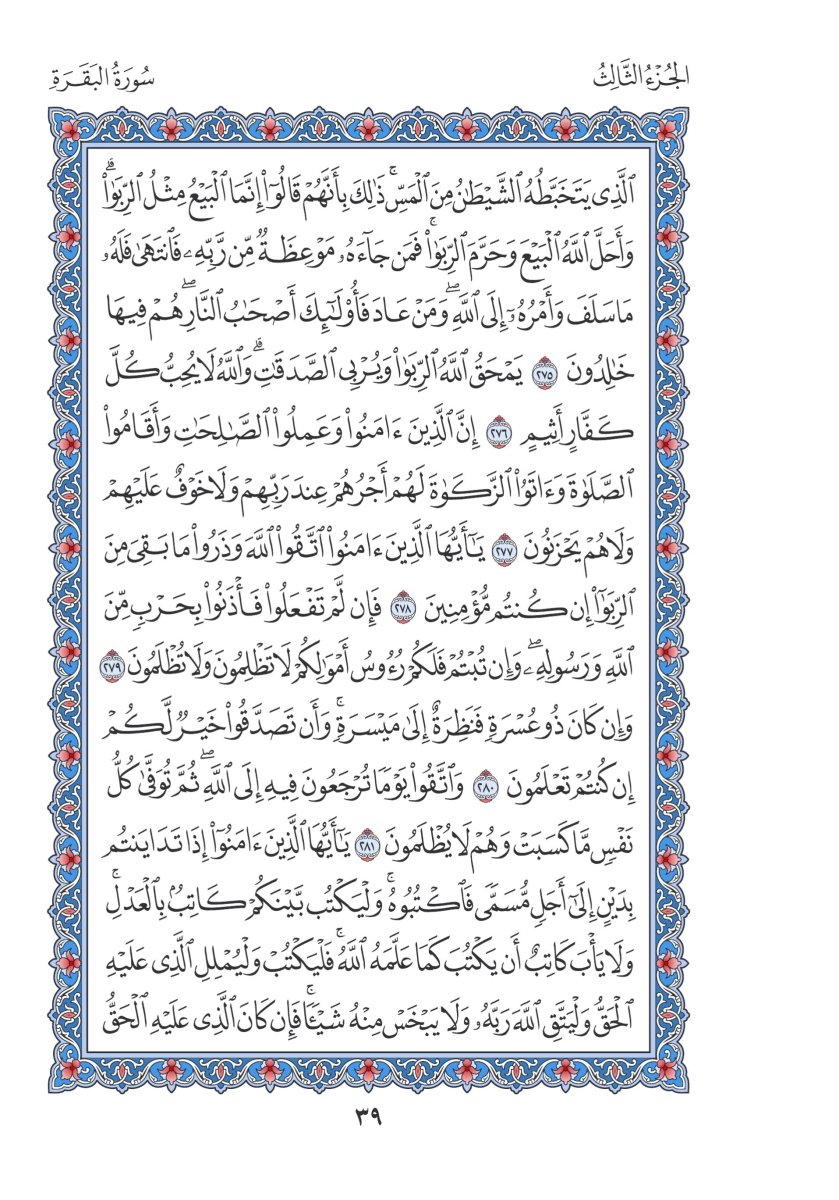 الجُزْءُ الثَّالِثُ
سُورَةُ البَقَرَةِ
ٱلَّذِى يَتَخَبَّطُهُ ٱلشَّيْطَٰنُ مِنَ ٱلْمَسِّ ۚ ذَٰلِكَ بِأَنَّهُمْ قَالُوٓا۟ إِنَّمَا ٱلْبَيْعُ مِثْلُ ٱلرِّبَوٰا۟ ۗ
وَأَحَلَّ ٱللَّهُ ٱلْبَيْعَ وَحَرَّمَ ٱلرِّبَوٰا۟ ۚ فَمَن جَآءَهُۥ مَوْعِظَةٌ مِّن رَّبِّهِۦ فَٱنتَهَىٰ فَلَهُۥ
مَا سَلَفَ وَأَمْرُهُۥٓ إِلَى ٱللَّهِ ۖ وَمَنْ عَادَ فَأُو۟لَٰٓئِكَ أَصْحَٰبُ ٱلنَّارِ ۖ هُمْ فِيهَا
خَٰلِدُونَ ٢٧٥ يَمْحَقُ ٱللَّهُ ٱلرِّبَوٰا۟ وَيُرْبِى ٱلصَّدَقَٰتِ ۗ وَٱللَّهُ لَا يُحِبُّ كُلَّ
كَفَّارٍ أَثِيمٍ ٢٧٦ إِنَّ ٱلَّذِينَ ءَامَنُوا۟ وَعَمِلُوا۟ ٱلصَّٰلِحَٰتِ وَأَقَامُوا۟
ٱلصَّلَوٰةَ وَءَاتَوُا۟ ٱلزَّكَوٰةَ لَهُمْ أَجْرُهُمْ عِندَ رَبِّهِمْ وَلَا خَوْفٌ عَلَيْهِمْ
وَلَا هُمْ يَحْزَنُونَ ٢٧٧ يَٰٓأَيُّهَا ٱلَّذِينَ ءَامَنُوا۟ ٱتَّقُوا۟ ٱللَّهَ وَذَرُوا۟ مَا بَقِىَ مِنَ
ٱلرِّبَوٰٓا۟ إِن كُنتُم مُّؤْمِنِينَ ٢٧٨ فَإِن لَّمْ تَفْعَلُوا۟ فَأْذَنُوا۟ بِحَرْبٍ مِّنَ
ٱللَّهِ وَرَسُولِهِۦ ۖ وَإِن تُبْتُمْ فَلَكُمْ رُءُوسُ أَمْوَٰلِكُمْ لَا تَظْلِمُونَ وَلَا تُظْلَمُونَ ٢٧٩
وَإِن كَانَ ذُو عُسْرَةٍ فَنَظِرَةٌ إِلَىٰ مَيْسَرَةٍ ۚ وَأَن تَصَدَّقُوا۟ خَيْرٌ لَّكُمْ
إِن كُنتُمْ تَعْلَمُونَ ٢٨٠ وَٱتَّقُوا۟ يَوْمًا تُرْجَعُونَ فِيهِ إِلَى ٱللَّهِ ۖ ثُمَّ تُوَفَّىٰ كُلُّ
نَفْسٍ مَّا كَسَبَتْ وَهُمْ لَا يُظْلَمُونَ ٢٨١ يَٰٓأَيُّهَا ٱلَّذِينَ ءَامَنُوٓا۟ إِذَا تَدَايَنتُم
بِدَيْنٍ إِلَىٰٓ أَجَلٍ مُّسَمًّى فَٱكْتُبُوهُ ۚ وَلْيَكْتُب بَّيْنَكُمْ كَاتِبٌۢ بِٱلْعَدْلِ ۚ
وَلَا يَأْبَ كَاتِبٌ أَن يَكْتُبَ كَمَا عَلَّمَهُ ٱللَّهُ ۚ فَلْيَكْتُبْ وَلْيُمْلِلِ ٱلَّذِى عَلَيْهِ
ٱلْحَقُّ وَلْيَتَّقِ ٱللَّهَ رَبَّهُۥ وَلَا يَبْخَسْ مِنْهُ شَيْـًٔا ۚ فَإِن كَانَ ٱلَّذِى عَلَيْهِ ٱلْحَقُّ
٣٩